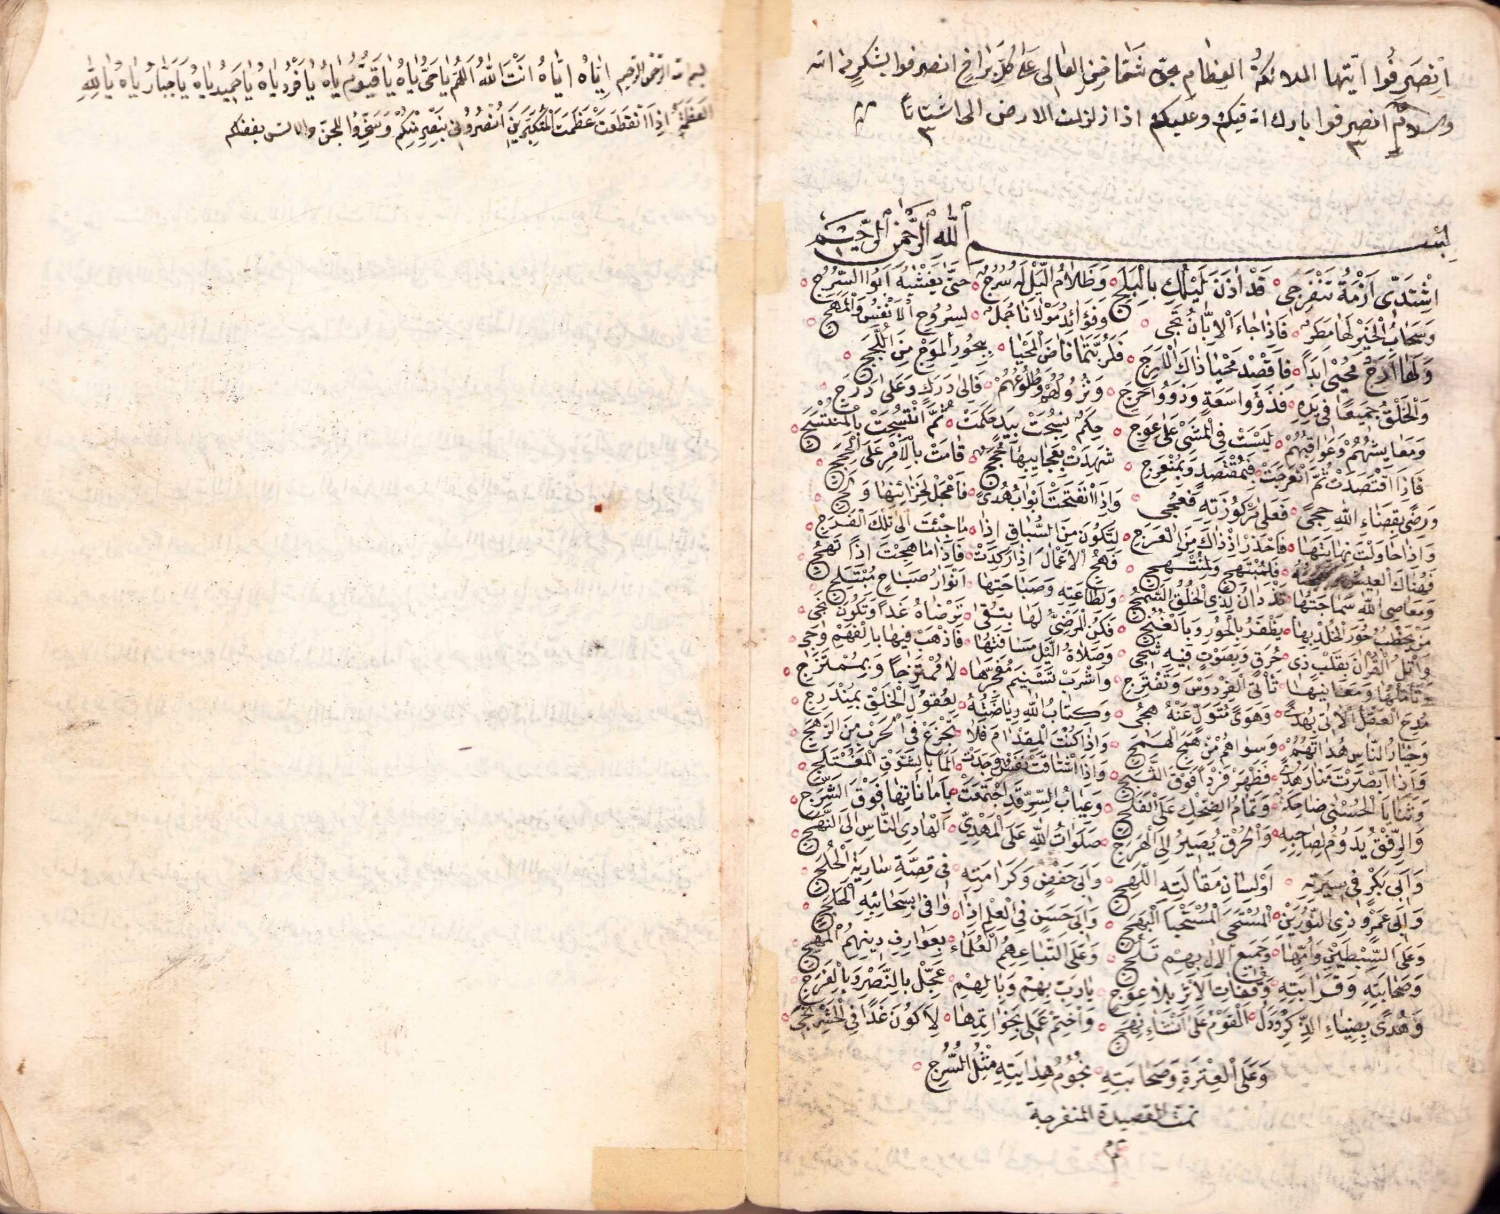 انصرفوا ايتها الملائكة العظام بحق شقاضى العالى على كل براخ انصرفوا يشكر الله
وسلام انصرفوا بارك الله فيكم وعليكم اذا زلزلت الارض الى اشتاتا
٣ ٣
بِسْمِ اللهِ الرَّحْمٰنِ الرَّحِيمِ
اِشْتَدِّى اَزْمَةُ تَنْفَرِجِى قَدْ اٰذَنَ لَيْلُكِ بِالْبَلَجِ وَظَلَامُ اللَّيْلِ لَهُ سُرُجٌ حَتّٰى يَغْشٰيهُ اَبُوا السُّرُجِ
وَسَحَابُ الْخَيْرِ لَهَا مَطَرٌ فَاِذَا جَاءَ الْاِبَّانُ تَجِى وَفَوَائِدُ مَوْلَانَا جُمَلٌ لِسُرُوحِ الْاَنْفُسِ وَالْمُهَجِ
وَلَهَا اَرَجٌ مُحْيٖى اَبَدًا فَاقْصُدْ مَحْيَا ذَاكَ الْاَرَجِ فَلَرُبَّتَمَا فَاضَ الْمَحْيَا بِبُحُورِ الْمَوْجِ مِنَ اللُّجَجِ
وَالْخَلْقُ جَمِيعًا فِى يَدِهِ فَذَوُوا سَعَةٍ وَذَوُوا حَرَجِ وَنُزُولُهُمْ وَطُلُوعُهُمْ فَاِلٰى دَرَكٍ وَعَلٰى دَرَجِ
وَمَعَايِشُهُمْ وَعَوَاقِبُهُمْ لَيْسَتْ فِى الْمَشْىِ عَلٰى عِوَجِ حِكَمٌ نُسِجَتْ بِيَدٍ حَكَمَتْ ثُمَّ انْتَسَجَتْ بِالْمُنْتَسِجِ
فَاِذَا اقْتَصَدَتْ ثُمَّ انْعَرَجَتْ فَبِمُقْتَصِدٍ وَبِمُنْعَرِجِ شَهِدَتْ بِعَجَايِبِهَا حُجَجٌ قَامَتْ بِالْاَمْرِ عَلَى الْحُجَجِ
وَرِضًى بِقَضَاءِ اللهِ حِجًى فَعَلٰى مَرْكُوزَتِهِ فَعُجِى وَاِذَا انْفَتَحَتْ اَبْوَابُ هُدًى فَاعْجَلْ لِخَزَائِنِهَا وَلِجِ
وَاِذَا حَاوَلْتَ نِهَايَتَهَا فَاحْذَرْ اِذْ ذَاكَ مِنَ الْعَرَجِ لِتَكُونَ مِنَ السُّبَّاقِ اِذَا مَا جِئْتَ اِلٰى تِلْكَ الْفُرَجِ
فَهُنَاكَ الْعَيْشُ فَلِمُبْتَهِجٍ وَلِمُنْتَهِجِ فَهِجِ الْاَعْمَالَ اِذَا رَكَدَتْ فَاِذَا مَا هِجْتَ اِذًا تَهِجِ
وَمَعَاصِى اللهِ سَمَاجَتُهَا تَزْدَانُ لِذِى الْخُلُقِ السَّمِجِ وَلِطَاعَتِهِ وَصَبَاحَتِهَا اَنْوَارُ صَبَاحٍ مُنْبَلِجِ
مَنْ يَخْطُبْ حُورَ الْخُلْدِ بِهَا يَظْفَرْ بِالْحُورِ وَبِالْغُنُجِ فَكُنِ الْمَرْضِىَّ لَهَا بِتُقًى تَرْضَاهُ غَدًا وَتَكُونُ نَجِى
وَاتْلُ الْقُرْاٰنَ بِقَلْبٍ ذِى حُرَقٍ وَبِصَوْتٍ فِيهِ شَجِى وَصَلَاةُ اللَّيْلِ مَسَافَتُهَا فَاذْهَبْ فِيهَا بِالْفَهْمِ وَجِى
وَتَأَمَّلْهَا وَمَعَانِيهَا تَأْتِى الْفِرْدَوْسَ وَتَفْتَرِجِ وَاشْرَبْ تَسْنِيمَ مُفَجَّرِهَا لَا مُمْتَزِجًا وَبِمُمْتَزِجِ
مُدِحَ الْعَقْلُ الْاٰتِى بِهُدًى وَهَوًى مُتَوَلٍّ عَنْهُ هُجِى وَكِتَابُ اللهِ رِيَاضَتُهُ لِعُقُولِ الْخَلْقِ بِمُنْدَرِجِ
وَخِيَارُ النَّاسِ هُدَاتُهُمْ وَسِوَاهُمْ مِنْ هَمَجِ الْهَمَجِ وَاِذَا كُنْتَ الْمِقْدَامَ فَلَا تَجْزَعْ فِى الْحَرْبِ مِنَ الرَّهَجِ
وَاِذَا اَبْصَرْتَ مَنَارَ هُدًى فَظْهَرْ فَرْدًا فَوْقَ الثَّبَجِ وَاِذَا اشْتَاقَتْ نَفْسٌ وَجَدَتْ اَلَمًا بِالشَّوْقِ الْمُعْتَلِجِ
وَثَنَايَا الْحُسْنٰى ضَاحِكَةٌ وَتَمَامُ الضِّحْكِ عَلَى الْفَلَجِ وَعِيَابُ السِّرِّ قَدِ اجْتَمَعَتْ بِاَمَانَاتِهَا فَوْقَ الشَّرَجِ
وَالرِّفْقُ يَدُومُ لِصَاحِبِهِ وَالْخُرْقُ يَصِيرُ اِلَى الْهَرَجِ صَلَوَاتُ اللهِ عَلَى الْمَهْدِىِّ الْهَادِى النَّاسِ اِلَى النَّهَجِ
وَاَبِى بَكْرٍ فِى سِيرَتِهِ وَلِسَانِ مَقَالَتِهِ اللَّهِجِ وَاَبِى حَفْصٍ وَكَرَامَتِهِ فِى قِصَّةِ سَارِيَةِ الْخُلُجِ
وَاَبِى عَمْرٍو ذِى النُّورَيْنِ الْمُسْتَحْىِ الْمُسْتَحْيَا الْبَهِجِ وَاَبِى حَسَنٍ فِى الْعِلْمِ اِذَا وَافٰى بِسَحَائِبِهِ الْخُلُجِ
وَعَلَى السِّبْطَيْنِ وَاُمِّهِمَا وَجَمِيعِ الْاٰلِ بِهِمْ تَلِجِ وَعَلٰى اَتْبَاعِهِمُ الْعُلَمَاءِ بِعَوَارِفِ دِينِهِمُ الْبَهِجِ
وَصَحَابَتِهِ وَقَرَابَتِهِ وَقُفَاةِ الْاَثَرِ بِلَا عِوَجِ يَا رَبِّ بِهِمْ وَبِاٰلِهِمِ عَجِّلْ بِالنَّصْرِ وَبِالْفَرَجِ
وَاخْتِمْ عَمَلِى بِخَوَاتِمِهَا لِاَكُونَ غَدًا فِى الْحَشْرِ نَجِى
وَعَلَى الْعِتْرَةِ وَصَحَابَتِهِ نُجُومُ هِدَايَتِهِ مِثْلُ السُّرُجِ
تمت القصيدة المنفرجة
بسم الله الرحمن الرحيم اِيَّاهُ اِيَّاهُ اَنْتَ اللهُ اَللّٰهُمَّ يَا حَىُّ يَاهُ يَا قَيُّومُ يَاهُ يَا فَرْدُ يَاهُ يَا حَمِيدُ يَاهُ يَا جَبَّارُ يَاهُ يَا اللهُ